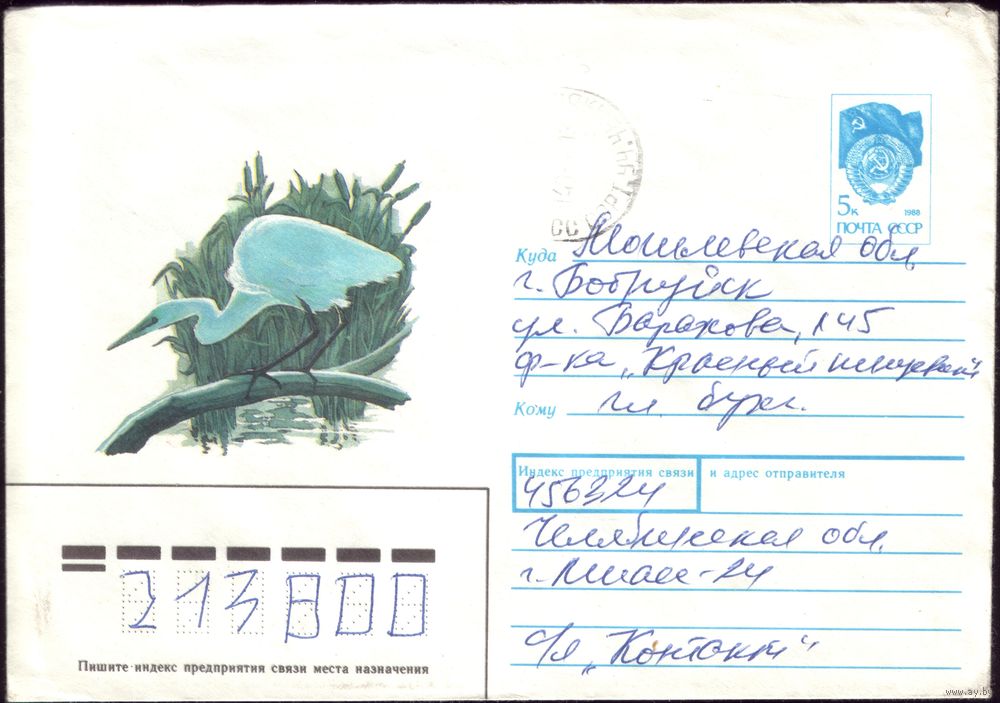 5к 1988
ПОЧТА СССР
Куда Могилевская обл
г. Бобруйск
ул. Бахарова, 145
ф-ка „Красный пищевик"
Кому гл. бухг.
Индекс предприятия связи и адрес отправителя
456324
Челябинская обл.
г. Миасс-24
а/я „Контакт"
213800
Пишите индекс предприятия связи места назначения
www.ay.by